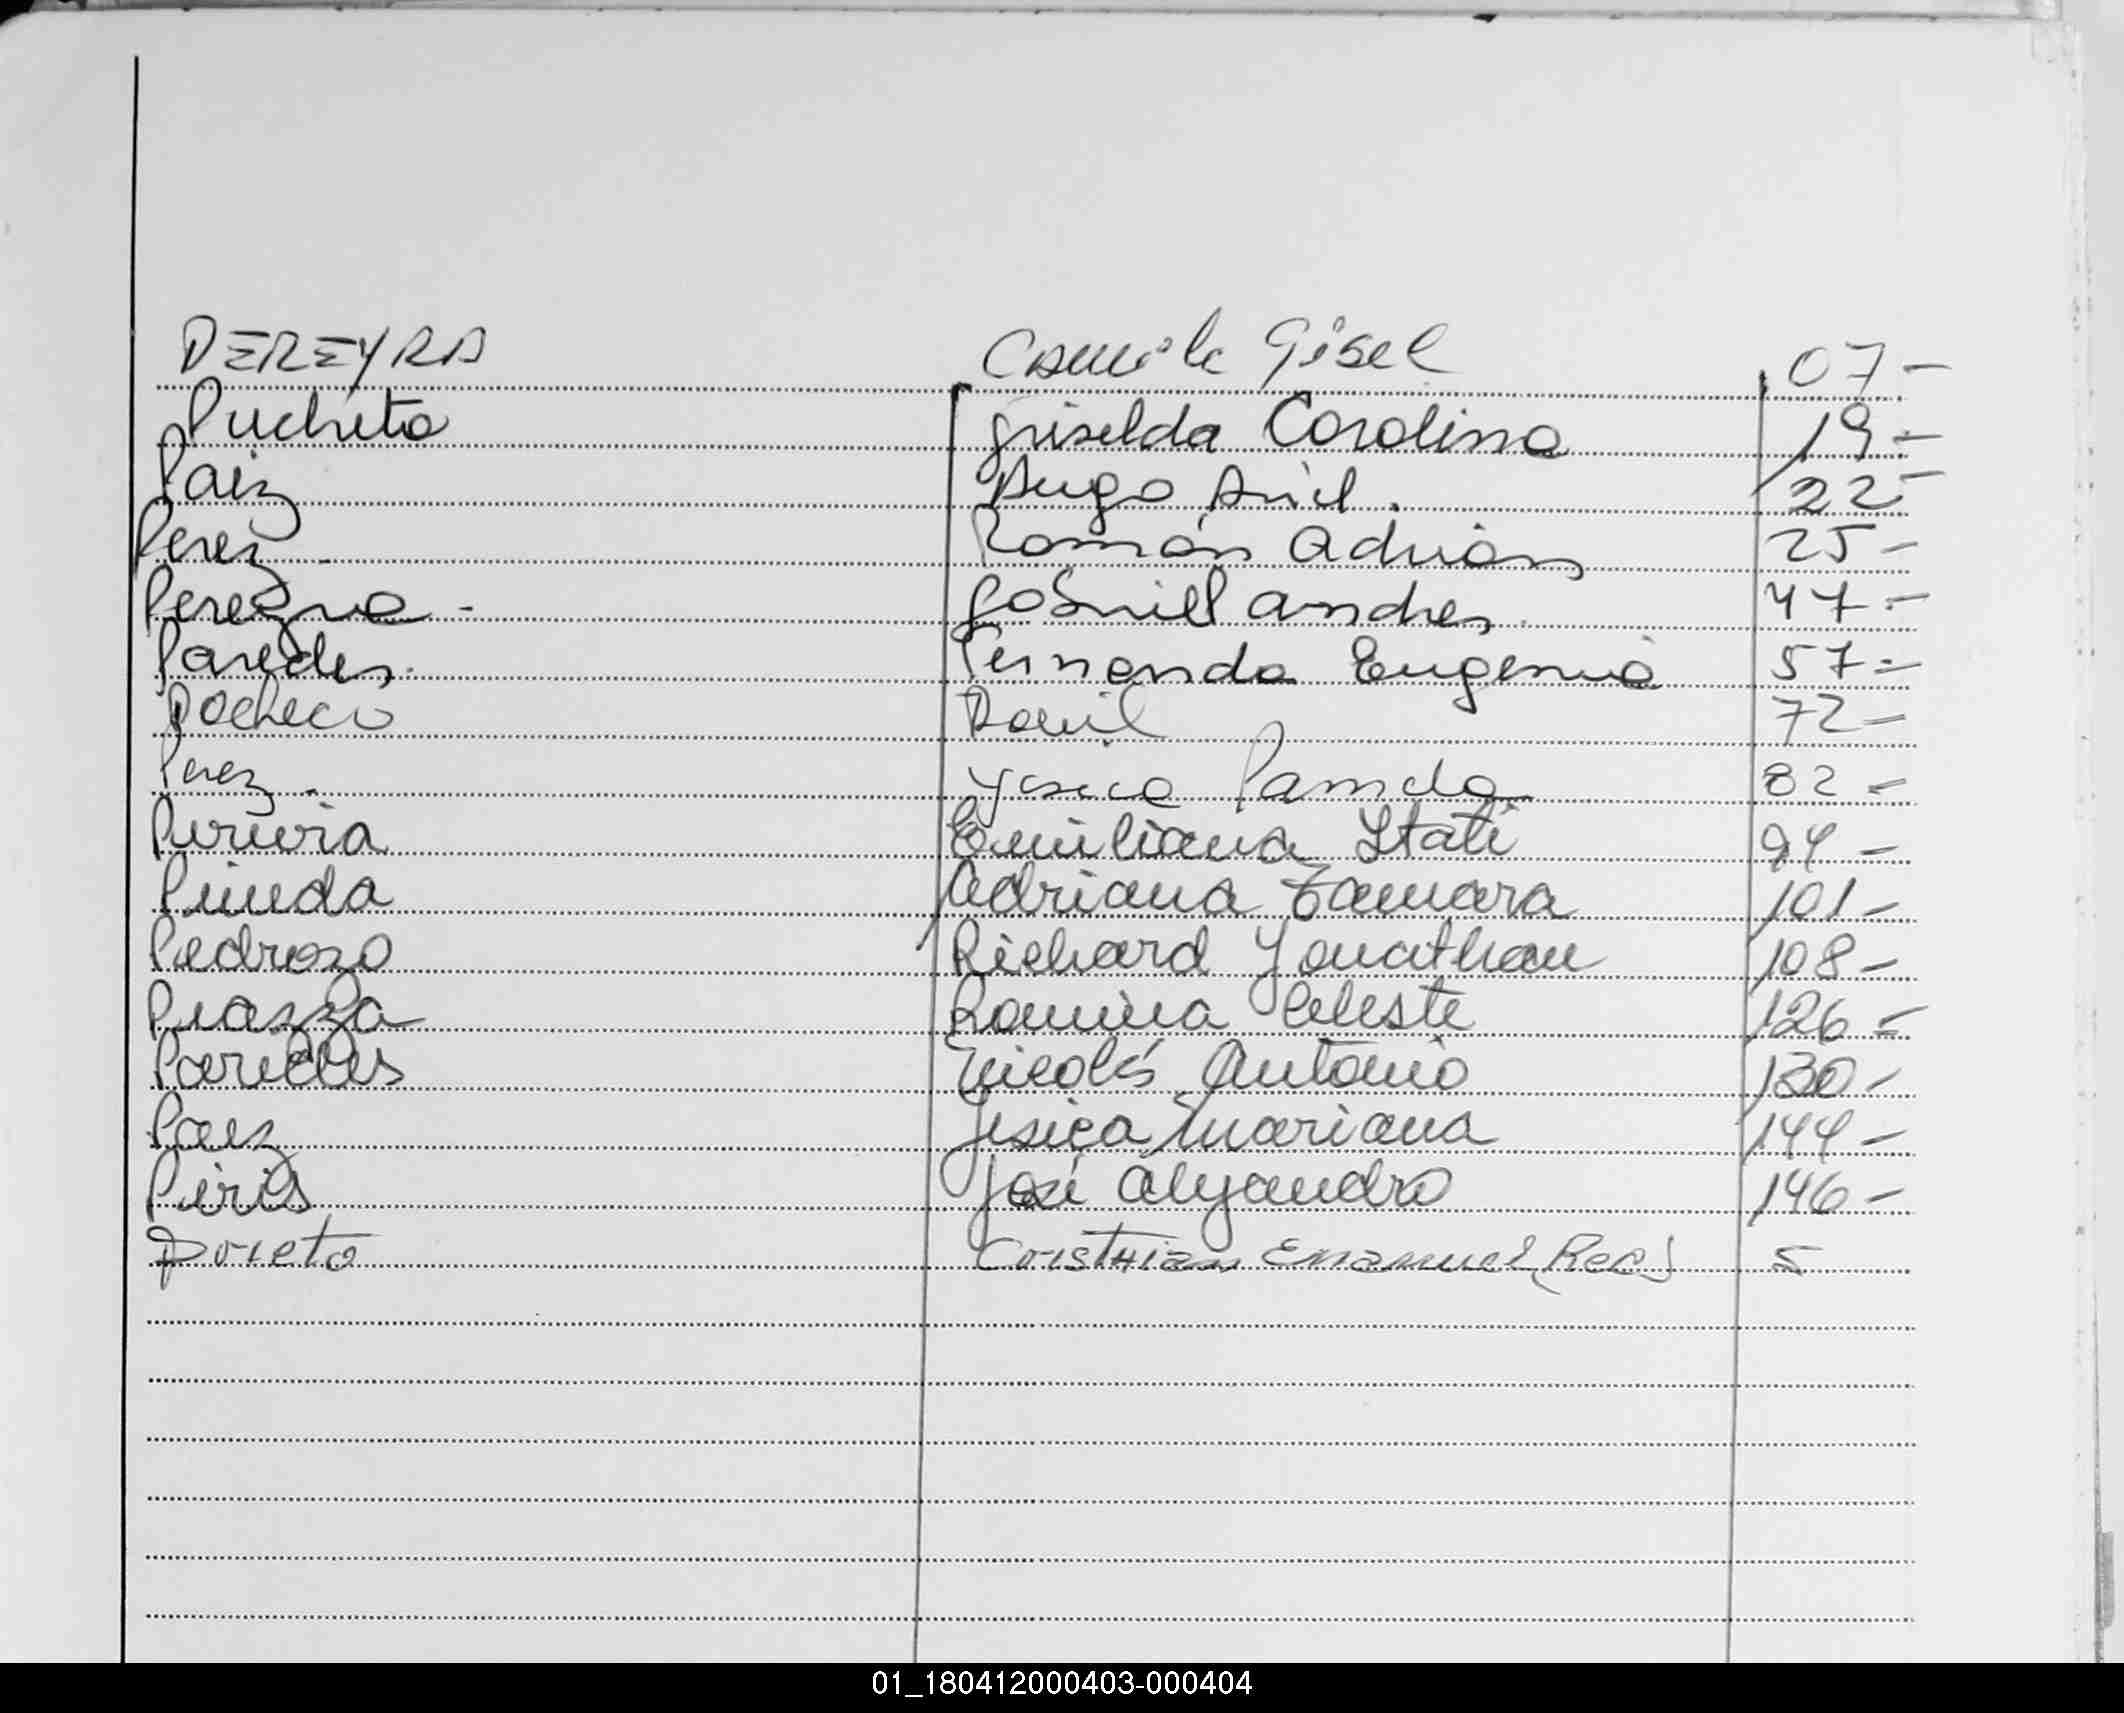 PEREYRA Camila Gisel 07-
Pucheta Griselda Carolina 19-
Paiz Hugo Ariel. 22-
Perez Román Adrián 25-
Pereyra - Gabriel Andres 47-
Paredes. Fernanda Eugenia 57-
Pacheco David 72-
Perez. Yesica Pamela 82-
Pereira Emiliana Itati 94-
Pineda Adriana Tamara 101-
Pedrozo Richard Yonathan 108-
Piazza Romina Celeste 126-
Paredes Nicolás Antonio 130-
Paez Jesica Mariana 144-
Piris José Alejandro 146-
Prieto Cristhian Emanuel (Rec) 5
01_180412000403-000404